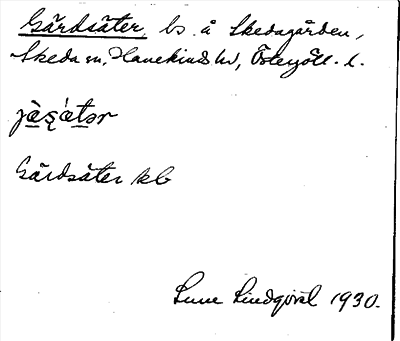 Gärdsäter, bs å Skedagården,
Skeda sn, Hanekinds hd, Östergötl. l.
jæ̀ṣǽtər
Gärdsäter kb
Sune Lindqvist 1930.